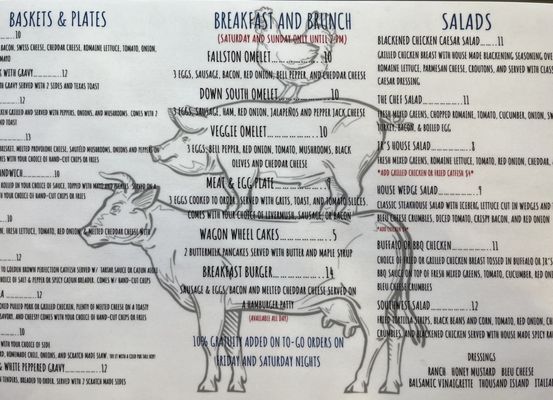 BASKETS & PLATES
10
BACON, SWISS CHEESE, CHEDDAR CHEESE, ROMAINE LETTUCE, TOMATO, ONION,
MAYO
WITH GRAVY..............12
GRAVY SERVED WITH 2 SIDES AND TEXAS TOAST
12
CHICKEN GRILLED AND SERVED WITH PEPPERS, ONIONS, AND MUSHROOMS. COMES WITH 2
AND TOAST
13
BRISKET, MELTED PROVOLONE CHEESE, SAUTÉED MUSHROOMS, ONIONS AND PEPPERS ON
WITH YOUR CHOICE OF HAND-CUT CHIPS OR FRIES
SANDWICH..............10
ROLLED IN YOUR CHOICE OF SAUCE, TOPPED WITH MAYO AND PICKLES. SERVED ON A
WITH YOUR CHOICE OF HAND-CUT CHIPS OR FRIES
10
FRESH LETTUCE, TOMATO, RED ONION, & MELTED CHEDDAR CHEESE WITH
TO GOLDEN BROWN PERFECTION CATFISH SERVED W/ TARTAR SAUCE OR CAJUN AIOLI
CHOICE OF SALT & PEPPER OR SPICY CAJUN BREADER. COMES W/ HAND-CUT CHIPS
12
PULLED PORK OR GRILLED CHICKEN, PLENTY OF MELTED CHEESE ON A TOASTY
SAVORY, AND CHEESY! COMES WITH YOUR CHOICE OF HAND-CUT CHIPS OR FRIES
10
WITH YOUR CHOICE OF SIDE
10
HOMEMADE CHILI, ONIONS, AND SCRATCH MADE SLAW. TRY IT WITH A COLD PBR TALL BOY!
& WHITE PEPPERED GRAVY..............12
TENDERS, BREADED TO ORDER. SERVED WITH 2 SCRATCH MADE SIDES
BREAKFAST AND BRUNCH
(SATURDAY AND SUNDAY ONLY UNTIL 2 PM)
FALLSTON OMELET..............10
3 EGGS, SAUSAGE, BACON, RED ONION, BELL PEPPER, AND CHEDDAR CHEESE
DOWN SOUTH OMELET..............10
3 EGGS, SAUSAGE, HAM, RED ONION, JALAPEÑOS AND PEPPER JACK CHEESE
VEGGIE OMELET..............10
3 EGGS, BELL PEPPER, RED ONION, TOMATO, MUSHROOMS, BLACK
OLIVES AND CHEDDAR CHEESE
MEAT & EGG PLATE..............9
3 EGGS COOKED TO ORDER. SERVED WITH GRITS, TOAST, AND TOMATO SLICES.
COMES WITH YOUR CHOICE OF LIVERMUSH, SAUSAGE, OR BACON
WAGON WHEEL CAKES..............5
2 BUTTERMILK PANCAKES SERVED WITH BUTTER AND MAPLE SYRUP
BREAKFAST BURGER..............14
SAUSAGE & EGGS, BACON AND MELTED CHEDDAR CHEESE SERVED ON
A HAMBURGER PATTY
(AVAILABLE ALL DAY)
10% GRATUITY ADDED ON TO-GO ORDERS ON
FRIDAY AND SATURDAY NIGHTS
SALADS
BLACKENED CHICKEN CAESAR SALAD.....11
GRILLED CHICKEN BREAST WITH HOUSE MADE BLACKENING SEASONING OVER
ROMAINE LETTUCE, PARMESAN CHEESE, CROUTONS, AND SERVED WITH CLASSIC
CAESAR DRESSING.
THE CHEF SALAD..............11
FRESH MIXED GREENS, CHOPPED ROMAINE, TOMATO, CUCUMBER, ONION,
TURKEY, BACON, & BOILED EGG
JR'S HOUSE SALAD..............8
FRESH MIXED GREENS, ROMAINE LETTUCE, TOMATO, RED ONION, CHEDDAR,
*ADD GRILLED CHICKEN OR FRIED CATFISH $4*
HOUSE WEDGE SALAD..............9
CLASSIC STEAKHOUSE SALAD WITH ICEBERG, LETTUCE CUT IN WEDGES AND
BLEU CHEESE CRUMBLES, DICED TOMATO, CRISPY BACON, AND RED ONION
*ADD CHICKEN $4*
BUFFALO OR BBQ CHICKEN..............11
CHOICE OF FRIED OR GRILLED CHICKEN BREAST TOSSED IN BUFFALO OR JR'S
BBQ SAUCE ON TOP OF FRESH MIXED GREENS, TOMATO, CUCUMBER, RED ONION
BLEU CHEESE CRUMBLES
SOUTHWEST SALAD..............12
FRIED TORTILLA STRIPS, BLACK BEANS AND CORN, TOMATO, RED ONION,
AND BLACKENED CHICKEN SERVED WITH HOUSE MADE SPICY
DRESSINGS
RANCH HONEY MUSTARD BLEU CHEESE
BALSAMIC VINAIGRETTE THOUSAND ISLAND ITALIAN